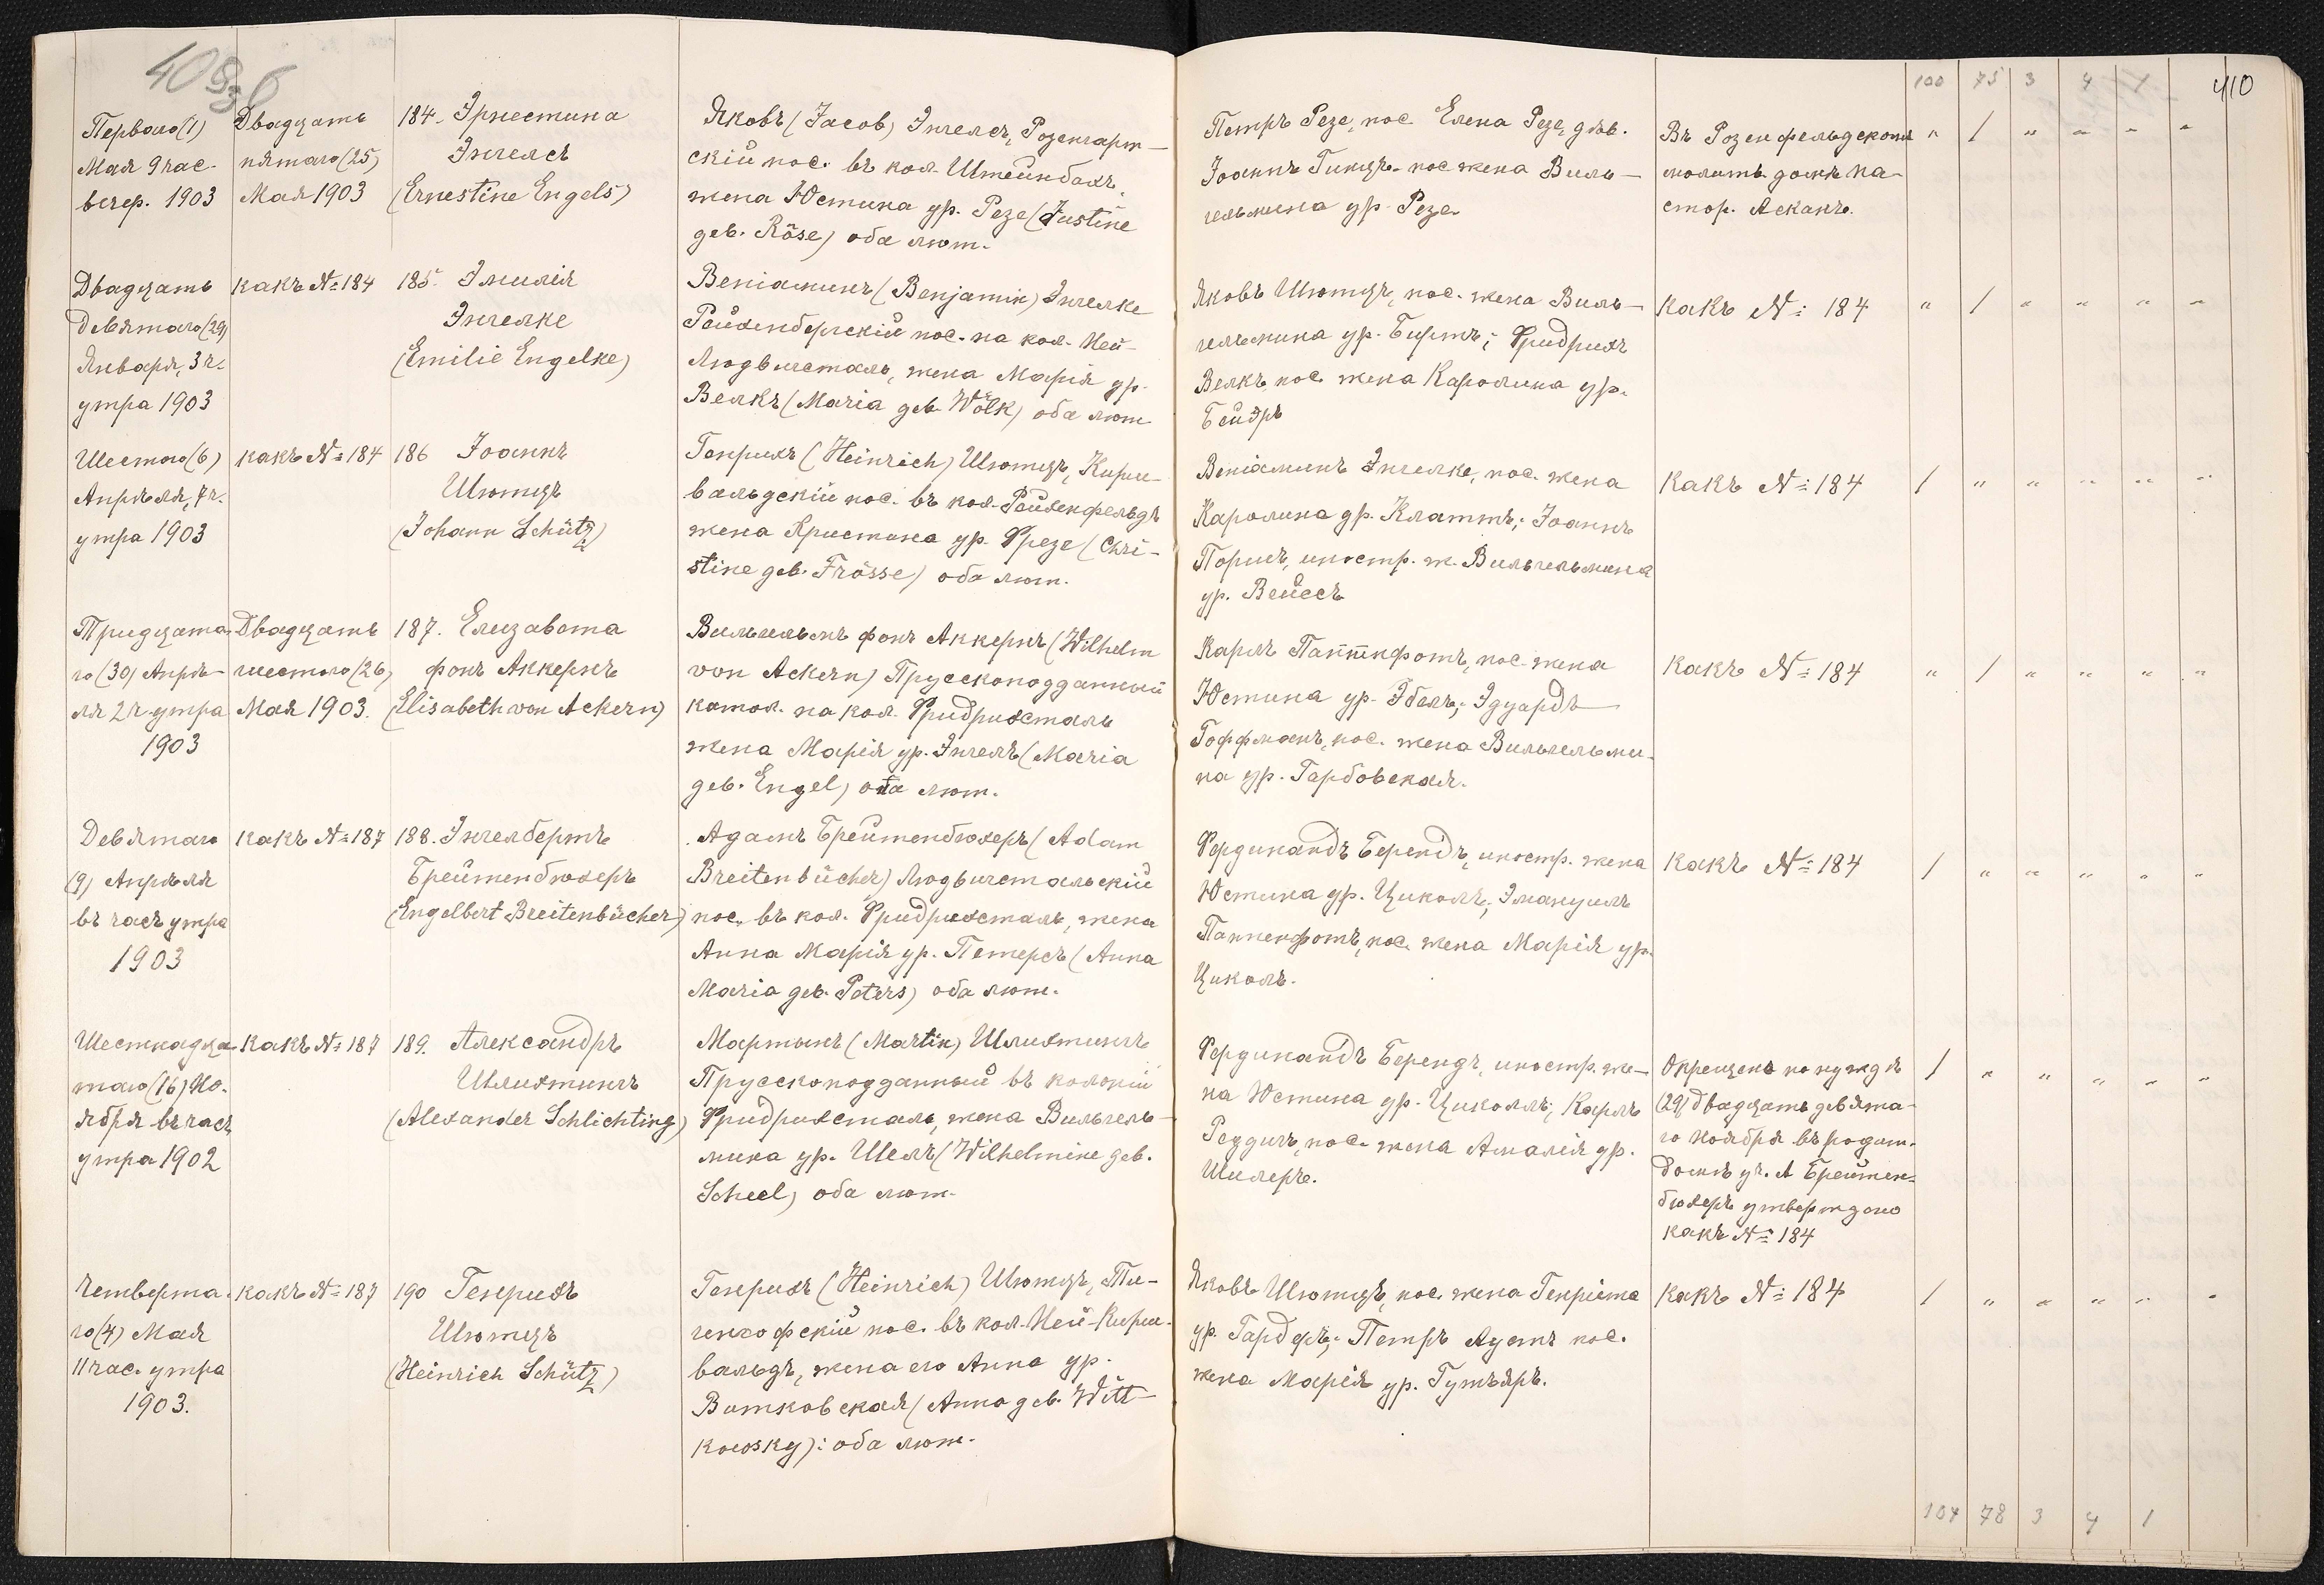 100 75 3 4 1 410
Перваго (1)
Мая 9 час.
вечер. 1903
Двадцать
пятаго (25)
Мая 1903
184. Эрнестина
Энгелсъ
(Ernestine Engels)
Яковъ (Jacob) Энгелсъ, Розенгарт-
скій пос. въ кол. Штейнбахъ,
жена Юстина ур. Резе (Justine
geb. Röse) оба лют.
Петръ Резе, пос. Елена Резе, дѣв.
Іоаннъ Гинцъ пос жена Виль-
гельмина ур. Резе.
Въ Розенфельдскомъ
молитв. домѣ па-
стор. Асканъ.
" / " " " "
Двадцать
девятаго (29)
Января, 3 ч.
утра 1903
какъ № 184
185. Эмилія
Энгелке
(Emilie Engelke)
Веніаминъ (Benjamin) Энгелке
Рейхенбергскій пос. на кол. Ней-
Людвигсталь, жена Марія ур.
Велкъ (Maria geb. Wölk) оба лют
Яковъ Шютцъ, пос. жена Виль-
гельмина ур. Биртъ; Фридрихъ
Велкъ, пос. жена Каролина ур.
Бейэръ
какъ № 184
" / " " " "
Шестого (6)
Апрѣля, 7 ч.
утра 1903
какъ № 184
186 Іоаннъ
Шютцъ
(Johann Schütz)
Генрихъ (Heinrich) Шютцъ, Кирш-
вальдскій пос. въ кол. Рейхенфельдъ
жена Христина ур. Фрезе (Chri-
stine geb. Frösse) оба лют.
Веніаминъ Энгелке, пос. жена
Каролина ур. Клаттъ; Іоаннъ
Порисъ, иностр. ж. Вильгельмина
ур. Вейссъ
какъ № 184
/ " " " " "
Тридцата-
го (30) Апрѣ-
ля 2 ч. утра
1903
Двадцать
шестого (26)
Мая 1903.
187. Елизавета
фонъ Аккернъ
(Elisabeth von Ackern)
Вильгельмъ фонъ Аккернъ (Wilhelm
von Ackern) Прусскоподданный
катол. на кол. Фридрихсталь
жена Марія ур. Энгель (Maria
geb. Engel) оба лют.
Карлъ Паппенфотъ, пос. жена
Юстина ур. Эбель; Эдуардъ
Гоффманъ, пос. жена Вильгельми-
на ур. Гарбовская.
какъ № 184
" / " " " "
Девятаго
(9) Апрѣля
въ часъ утра
1903
какъ № 187
188. Энгелбертъ
Брейтенбюхеръ
(Engelbert Breitenbücher)
Адамъ Брейтенбюхеръ (Adam
Breitenbücher) Людвигстальскій
пос. въ кол. Фридрихсталь, жена
Анна Марія ур. Петерсъ (Anna
Maria geb. Peters) оба лют.
Фердинандъ Берендъ, иностр. жена
Юстина ур. Циколъ; Эмануилъ
Паппенфотъ, пос. жена Марія ур.
Циколъ.
какъ № 184
/ " " " " "
Шестнадца-
таго (16) Но-
ября въ часъ
утра 1902
какъ № 187
189. Александръ
Шлихтингъ
(Alexander Schlichting)
Мартынъ (Martin) Шлихтингъ
Прусскоподданный въ колоніи
Фридрихсталь, жена Вильгель-
мина ур. Шель (Wilhelmine geb.
Scheel) оба лют.
Фердинандъ Берендъ, иностр. же-
на Юстина ур. Циколлъ; Карлъ
Реддигъ, пос. жена Амалія ур.
Шилеръ.
Окрещенъ по нуждѣ
(29) двадцать девята-
го Ноября въ родит.
домѣ уч. А Брейтен-
бюхеръ утверждено
какъ № 184
/ " " " " "
Четверта-
го (4) Мая
11 час. утра
1903.
какъ № 187
190 Генрихъ
Шютцъ
(Heinrich Schütz)
Генрихъ (Heinrich) Шютцъ, Ти-
генгофскій пос. въ кол. Ней-Кирш-
вальдъ, жена его Анна ур.
Витковская (Anna geb. Witt-
kowsky): оба лют.
Яковъ Шютцъ, пос. жена Генріета
ур. Гардеръ; Петръ Аустъ пос.
жена Марія ур. Гутъяръ.
какъ № 184
/ " " " " "
104 78 3 4 1